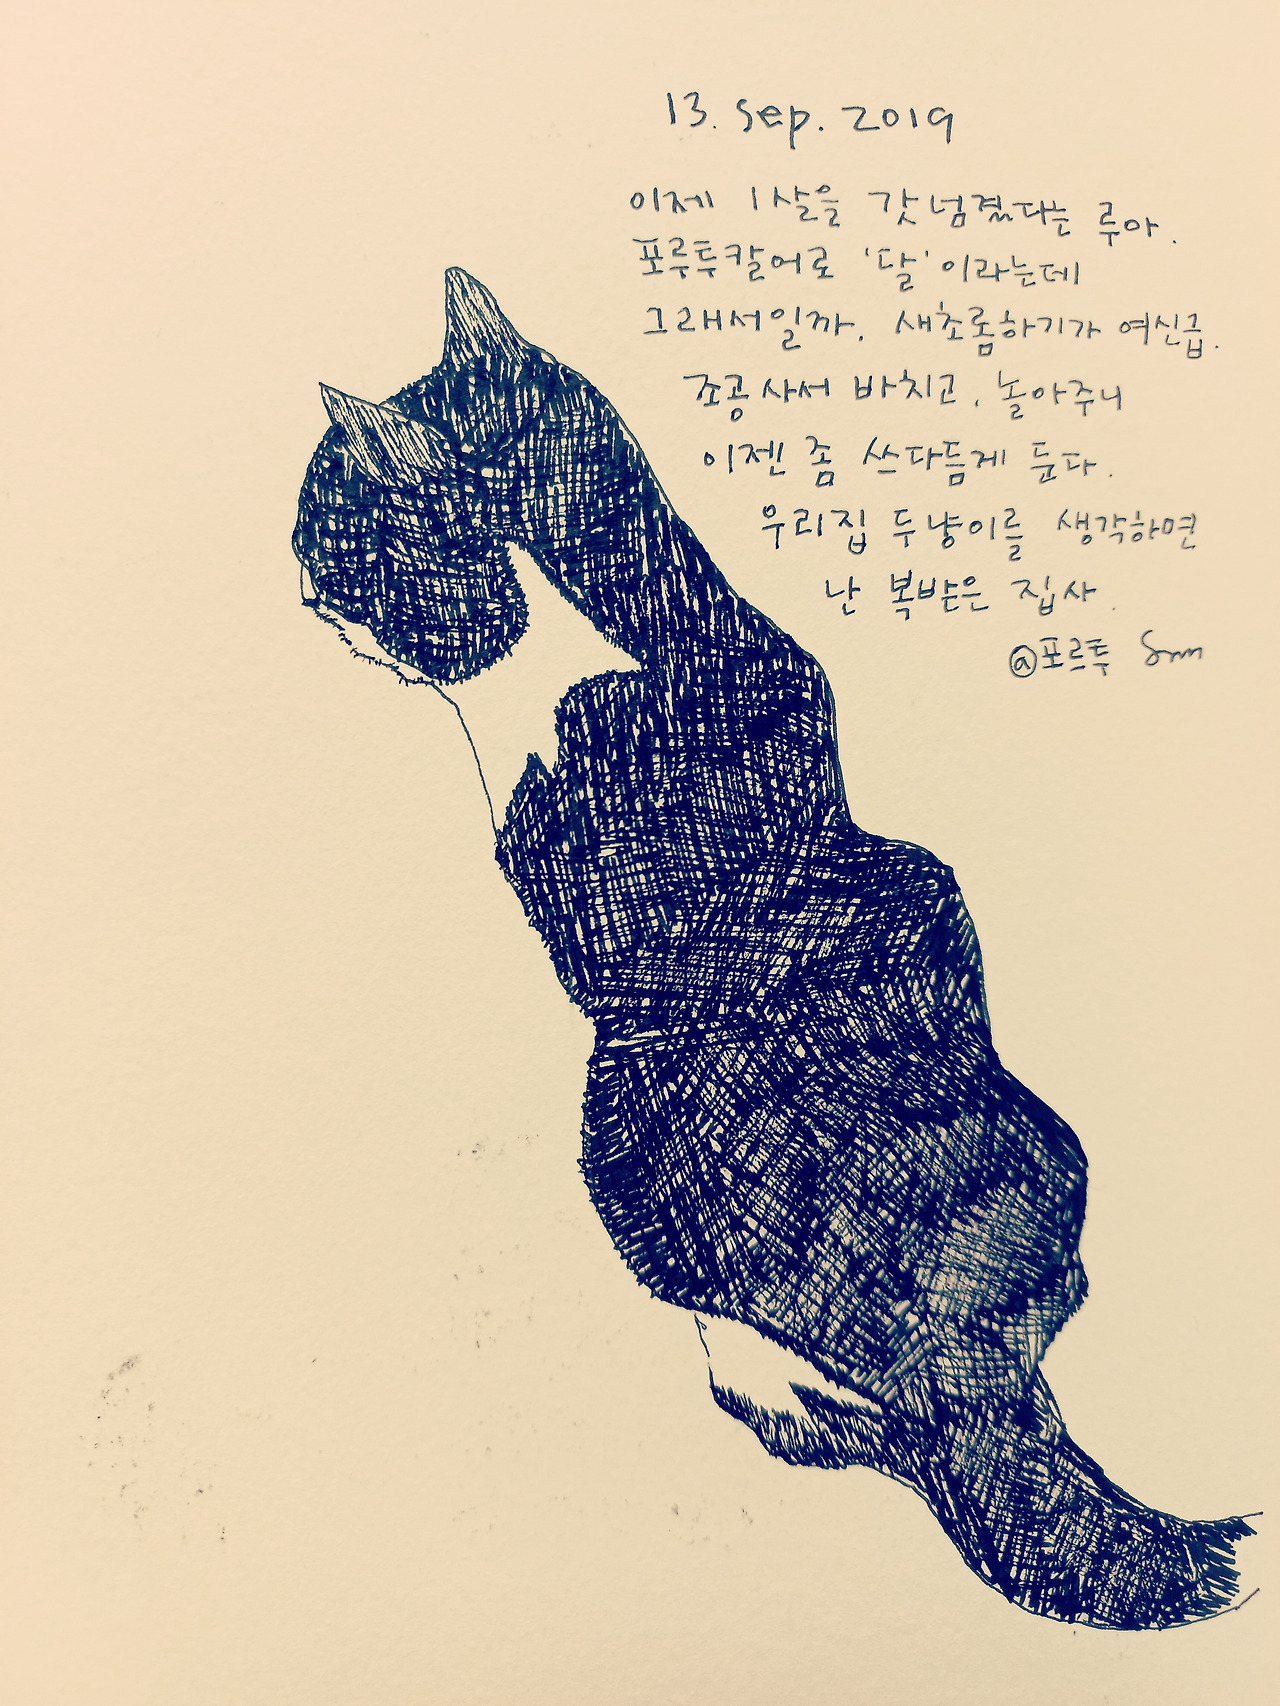 13. Sep. 2019
이제 1살을 갓 넘겼다는 루아.
포루투칼어로 '달'이라는데
그래서일까. 새초롬하기가 여신급.
조공 사서 바치고, 놀아주니
이젠 좀 쓰다듬게 둔다.
우리집 두냥이를 생각하면
난 복받은 집사.
@포르투